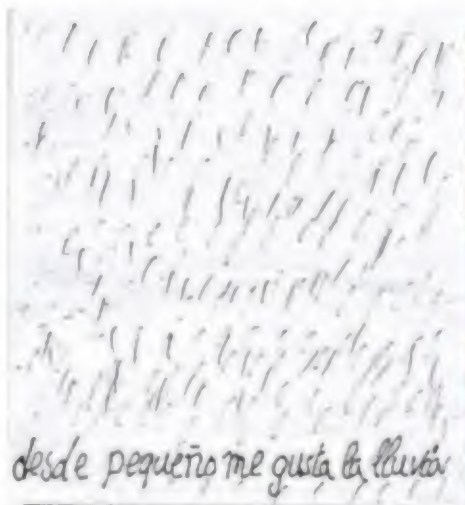 desde pequeño me gusta la lluvia